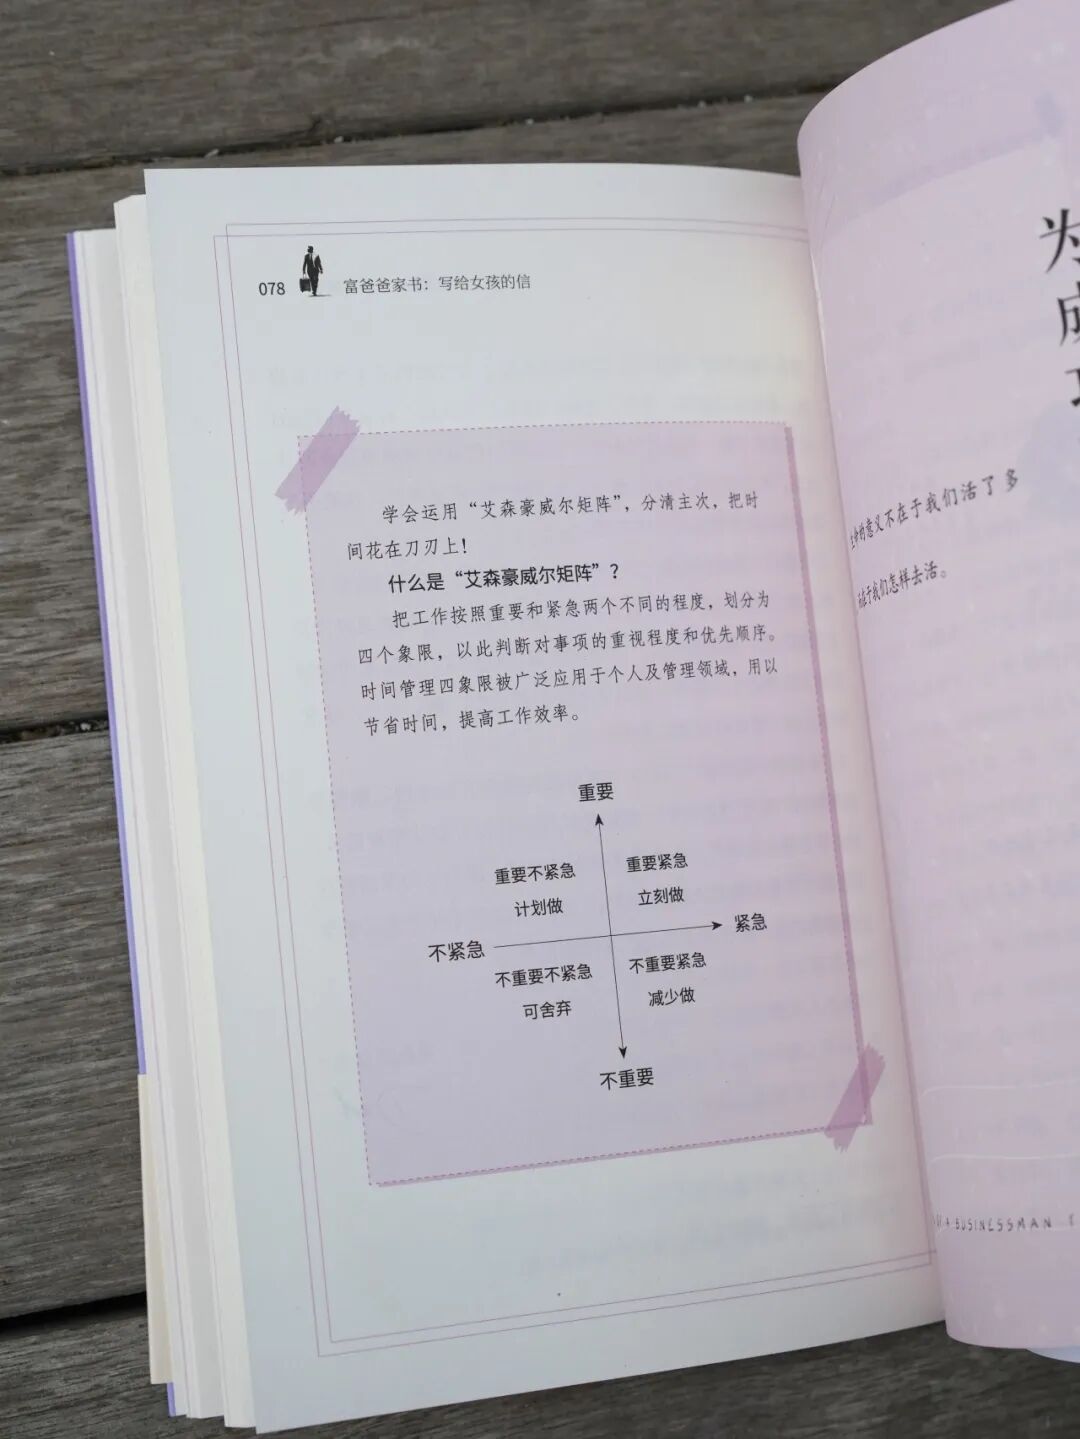 078
富爸爸家书：写给女孩的信
学会运用“艾森豪威尔矩阵”，分清主次，把时
间花在刀刃上！
什么是“艾森豪威尔矩阵”？
把工作按照重要和紧急两个不同的程度，划分为
四个象限，以此判断对事项的重视程度和优先顺序。
时间管理四象限被广泛应用于个人及管理领域，用以
节省时间，提高工作效率。
重要
重要不紧急
计划做
重要紧急
立刻做
不紧急
紧急
不重要不紧急
可舍弃
不重要紧急
减少做
不重要
为
成
的意义不在于我们活了多
在于我们怎样去活。
BUSINESSMAN